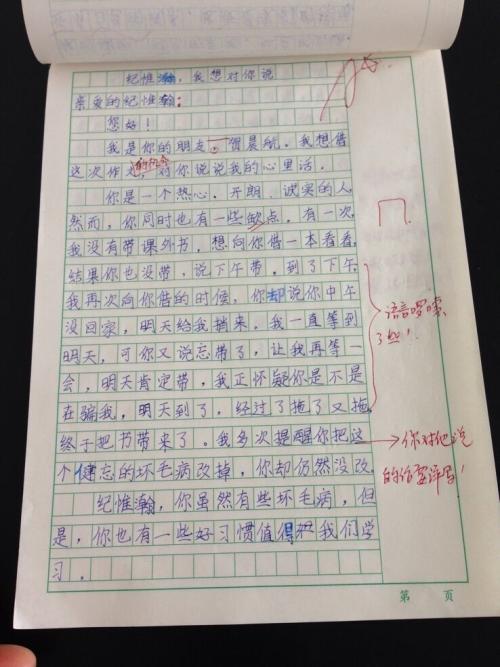 纪惟瀚，我想对你说
亲爱的纪惟瀚：
您好！
我是你的朋友：胥晨航。我想借
这次作文的机会，对你说说我的心里话。
你是一个热心、开朗、诚实的人
然而，你同时也有一些缺点。有一次
我没有带课外书，想向你借一本看看，
结果你也没带，说下午带。到了下午，
我再次向你借的时候，你却说你中午
没回家，明天给我捎来。我一直等到
明天，可你又说忘带了，让我再等一
会，明天肯定带，我正怀疑你是不是
在骗我，明天到了。经过了拖了又拖，
终于把书带来了。我多次提醒你把这
个健忘的坏毛病改掉，你却仍然没改
纪惟瀚，你虽然有些坏毛病，但
是，你也有一些好习惯值得我们学
习．
语言啰嗦
了些！
你对他说
的话要详写！
第 页